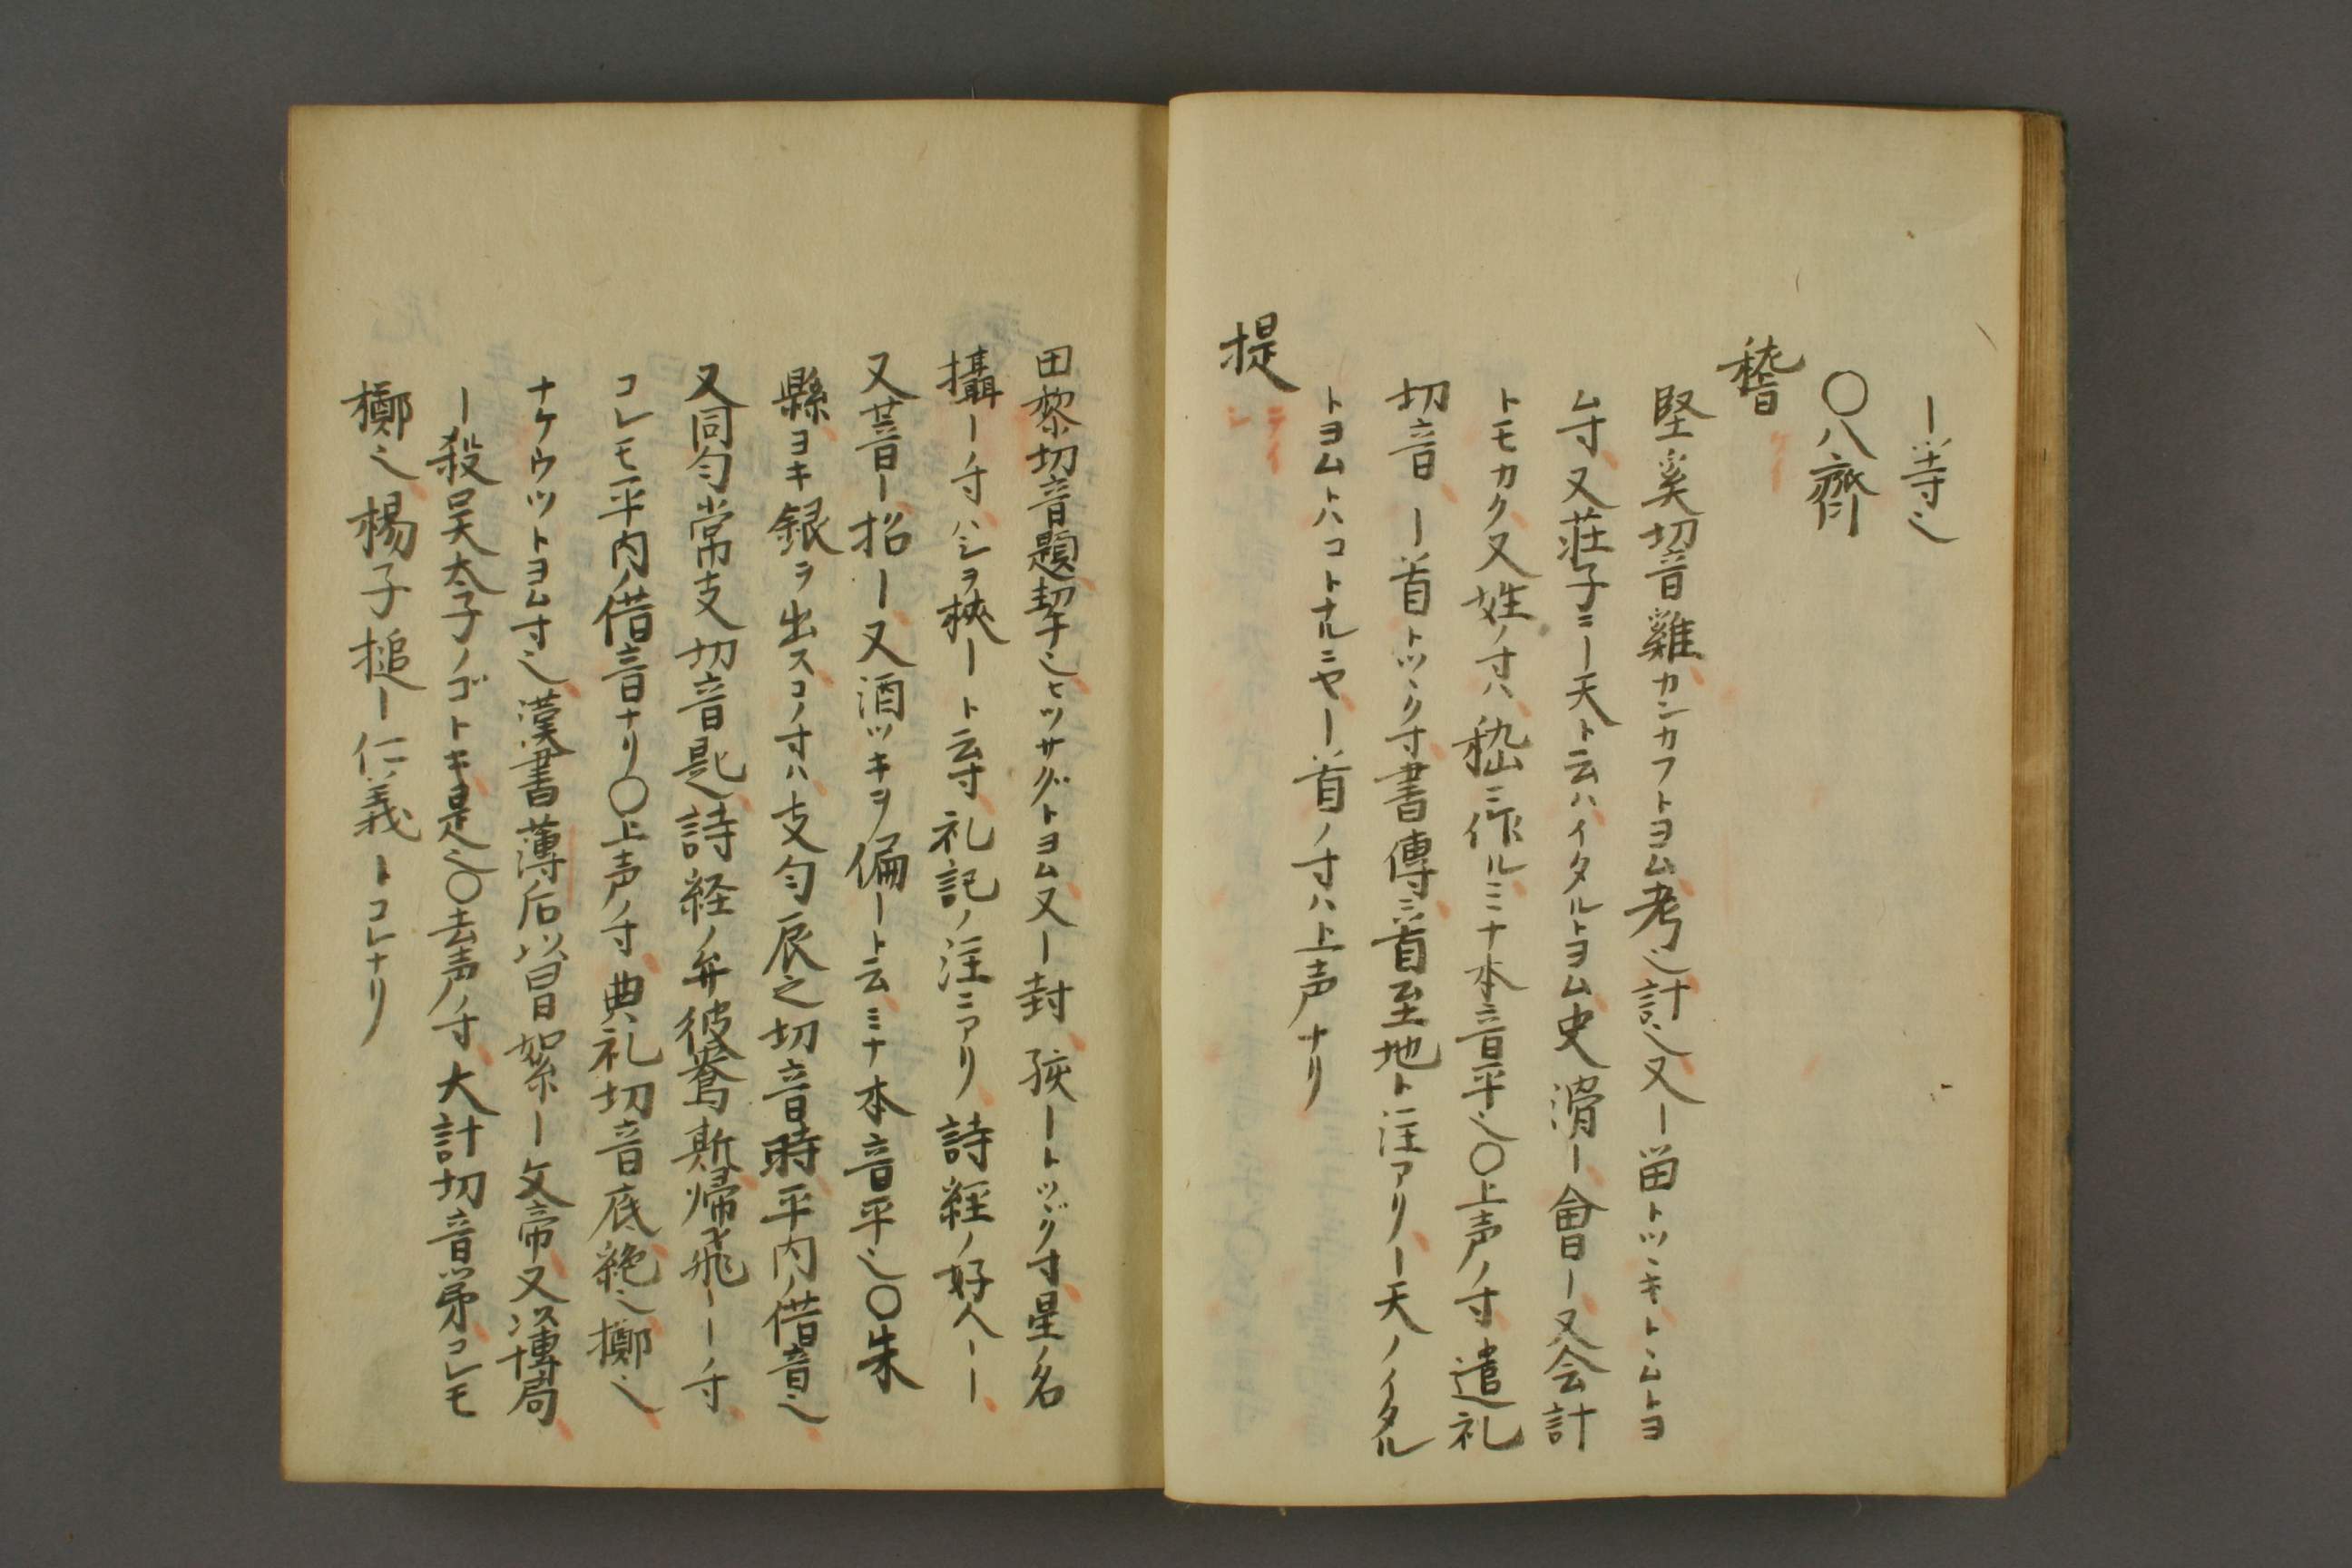 ー等〻
〇八齊
稽 ケイ
堅奚切音雞カンカフトヨム考〻計〻又ー畱トツヽキトヽムトヨ
ム寸又荘子ニー天ト云ハイタルトヨム史滑ー會ー又会計
トモカク又姓ノ寸ハ嵇ニ作ルミナ本音平〻〇上声ノ寸遣礼
切音ーー首トツヽク寸書傳ニ首至地ト注アリー天ノイタル
トヨムハコトナルニヤー首ノ寸ハ上声ナリ
提 テイ シ
田黎切音題挈〻ヒツサグトヨム又ー封孩ートツヾク寸星ノ名
攝ーノ寸ハシヲ挾ート云寸礼記ノ注ニアリ詩経ノ好人ーー
又菩ー招ー又酒ツキヲ偏ート云ミナ本音平〻〇朱
縣ヨキ銀ヲ出スコノ寸ハ支匀辰之切音時平内ノ借音〻
又同匀常支切音匙詩経ノ弁彼鸒斯帰飛ーーノ寸
コレモ平内ノ借音ナリ〇上声ノ寸典礼切音底絶〻擲〻
ナケウツトヨム寸〻漢書薄后以冒絮ー文帝又以博局
ー殺呉太子ノゴトキ是〻〇去声ノ寸大計切音第コレモ
擲〻楊子搥ー仁義トコレナリ